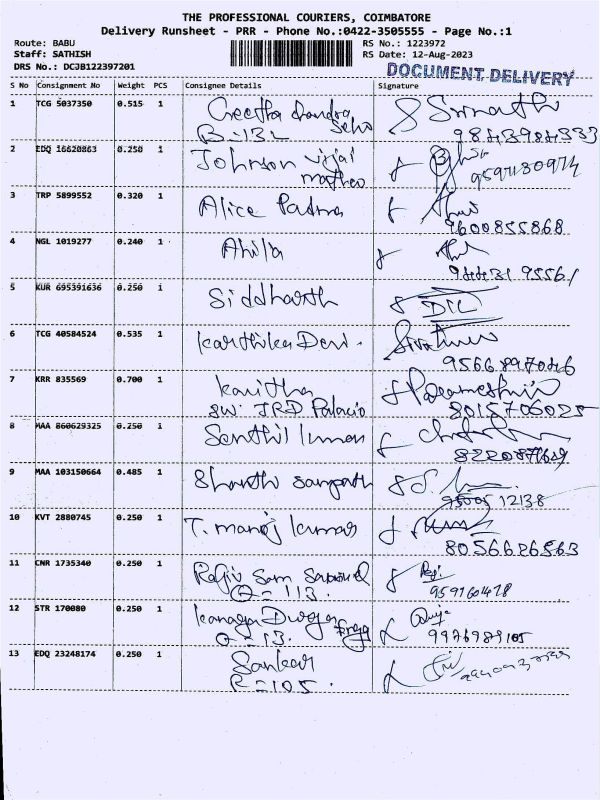 THE PROFESSIONAL COURIERS, COIMBATORE
Delivery Runsheet - PRR - Phone No.:0422-3505555 - Page No.:1
Route: BABU
RS No.: 1223972
Staff: SATHISH
RS Date: 12-Aug-2023
DRS No.: DCJB122397201
DOCUMENT DELIVERY
S No Consignment No Weight PCS Consignee Details Signature
1 TCG 5037350 0.515 1 Geetha chandra
B-132
2 EDQ 16620863 0.250 1 Johnson vijai
mathew
3 TRP 5899552 0.320 1 Alice Padma
9600855868
4 NGL 1019277 0.240 1 Ahila
5 KUR 695391636 0.250 1 Siddharth
6 TCG 40584524 0.535 1 Karthika Devi.
7 KRR 835569 0.700 1 Kavitha Parameshwari
SW: JRD Palacio 8015706025
8 MAA 860629325 0.250 1 Senthil kumar
9 MAA 103150664 0.485 1 Shanthi sampath
95005 12138
10 KVT 2880745 0.250 1 T. manoj kumar
8056626563
11 CNR 1735340 0.250 1 Rajiv Sam
Q-113.
12 STR 170080 0.250 1
Q-13. 9976989105
13 EDQ 23248174 0.250 1 Sankar
R-105.